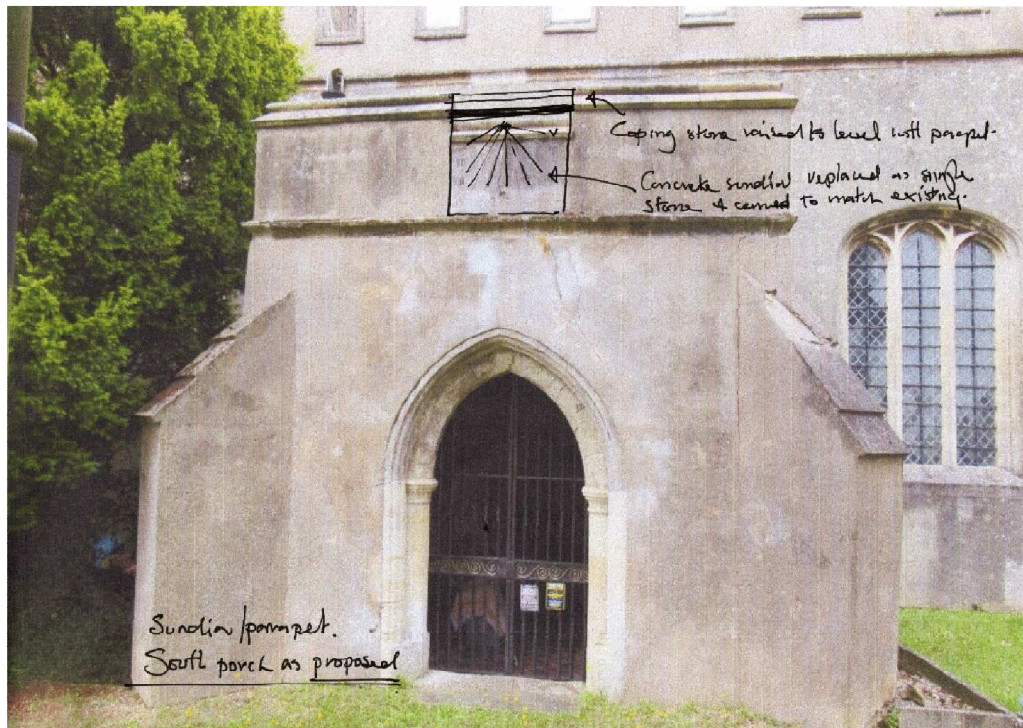 Coping stone raised to level with parapet.
Concrete sundial replaced as single
stone & carved to match existing.
Sundial/parapet.
South porch as proposed